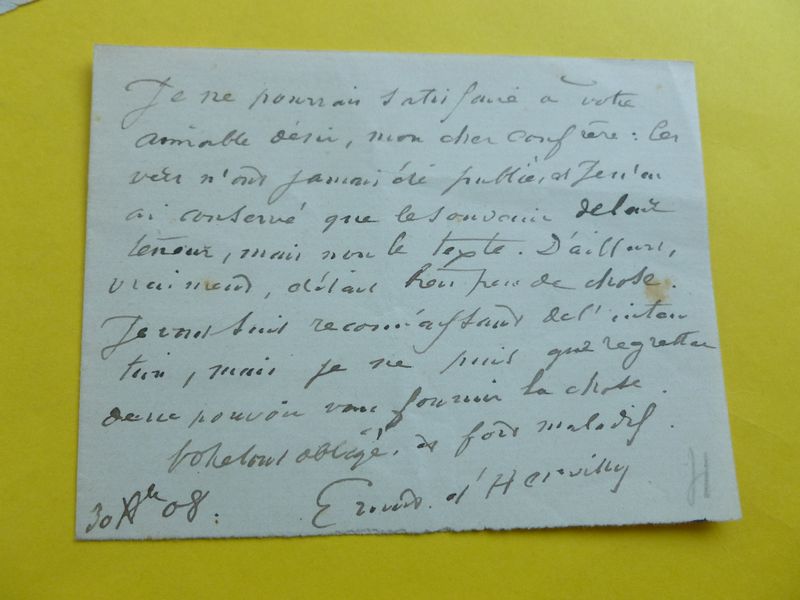 Je ne pourrais satisfaire à votre
aimable désir, mon cher confrère : les
vers n'ont jamais été publiés et Je n'en
ai conservé que le souvenir de leur
teneur, mais non le texte. D'ailleurs,
vraiment, c'était bien peu de chose.
Je vous suis reconnaissant de l'inten
tion, mais je ne puis que regretter
de ne pouvoir vous fournir la chose.
Votre tout obligé, et fort maladif.
30 Xbre 08. Ernest d'Hervilly
H